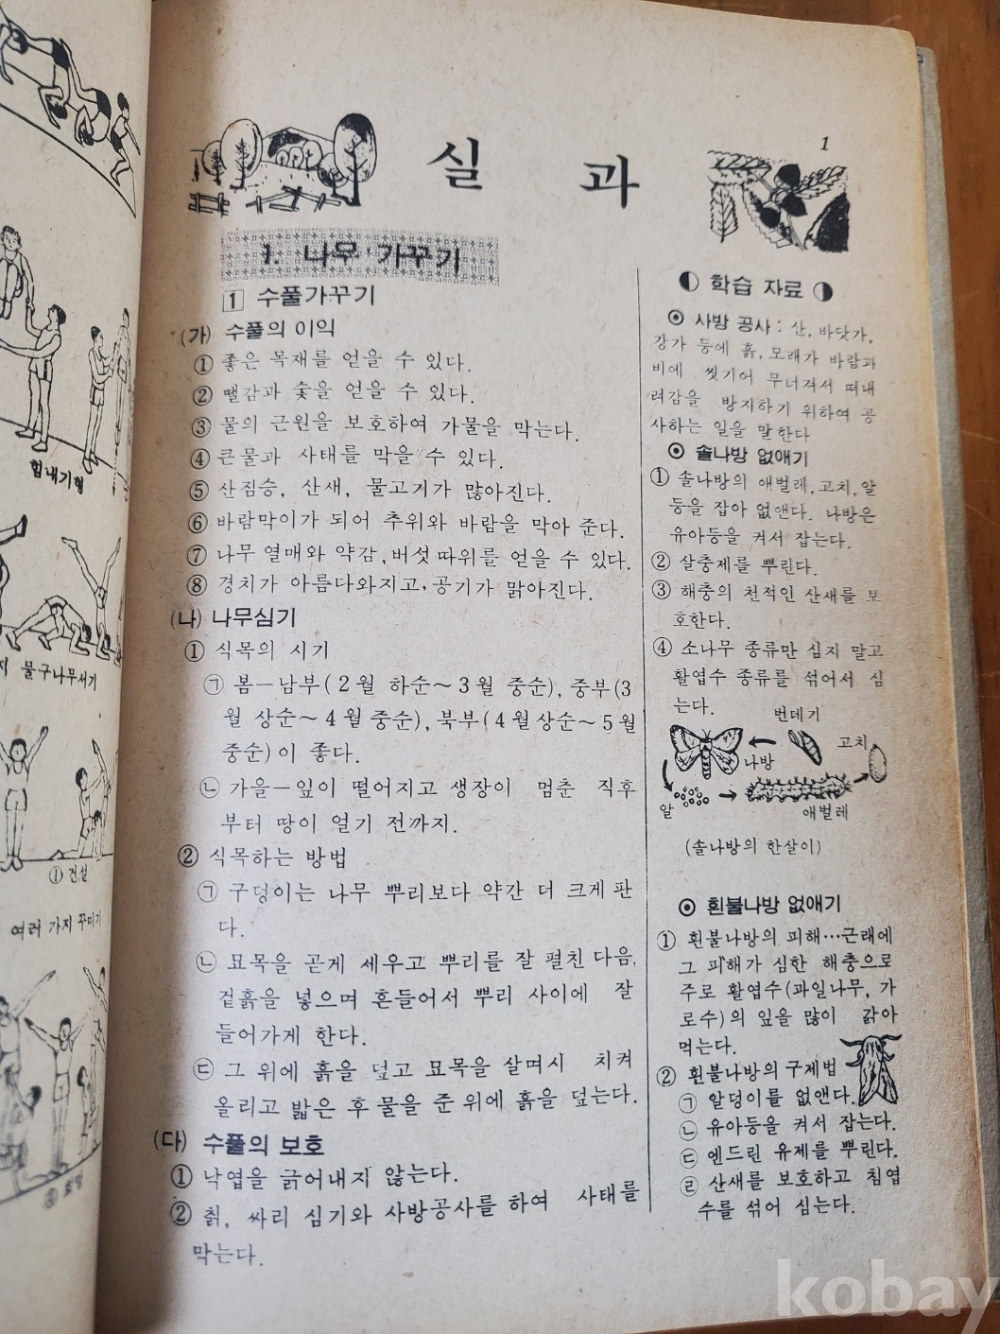 힘내기형
물구나무서기
① 건설
여러 가지 꾸미기
1
실 과
1. 나무 가꾸기
1 수풀가꾸기
(가) 수풀의 이익
① 좋은 목재를 얻을 수 있다.
② 땔감과 숯을 얻을 수 있다.
③ 물의 근원을 보호하여 가물을 막는다.
④ 큰물과 사태를 막을 수 있다.
⑤ 산짐승, 산새, 물고기가 많아진다.
⑥ 바람막이가 되어 추위와 바람을 막아 준다.
⑦ 나무 열매와 약감, 버섯 따위를 얻을 수 있다.
⑧ 경치가 아름다와지고, 공기가 맑아진다.
(나) 나무심기
① 식목의 시기
㉠ 봄—남부(2월 하순~3월 중순), 중부(3
월 상순~4월 중순), 북부(4월 상순~5월
중순)이 좋다.
㉡ 가을—잎이 떨어지고 생장이 멈춘 직후
부터 땅이 얼기 전까지.
② 식목하는 방법
㉠ 구덩이는 나무 뿌리보다 약간 더 크게 판
다.
㉡ 묘목을 곧게 세우고 뿌리를 잘 펼친 다음,
겉흙을 넣으며 흔들어서 뿌리 사이에 잘
들어가게 한다.
㉢ 그 위에 흙을 덮고 묘목을 살며시 치켜
올리고 밟은 후 물을 준 위에 흙을 덮는다.
(다) 수풀의 보호
① 낙엽을 긁어내지 않는다.
② 칡, 싸리 심기와 사방공사를 하여 사태를
막는다.
학습 자료
⊙ 사방 공사 : 산, 바닷가,
강가 등에 흙, 모래가 바람과
비에 씻기어 무너져서 떠내
려감을 방지하기 위하여 공
사하는 일을 말한다
⊙ 솔나방 없애기
① 솔나방의 애벌레, 고치, 알
등을 잡아 없앤다. 나방은
유아등을 켜서 잡는다.
② 살충제를 뿌린다.
③ 해충의 천적인 산새를 보
호한다.
④ 소나무 종류만 심지 말고
활엽수 종류를 섞어서 심
는다.
번데기
고치
나방
알
애벌레
(솔나방의 한살이)
⊙ 흰불나방 없애기
① 흰불나방의 피해…근래에
그 피해가 심한 해충으로
주로 활엽수(과일나무, 가
로수)의 잎을 많이 갉아
먹는다.
② 흰불나방의 구제법
㉠ 알덩이를 없앤다.
㉡ 유아등을 켜서 잡는다.
㉢ 엔드린 유제를 뿌린다.
㉣ 산새를 보호하고 침엽
수를 섞어 심는다.
kobay